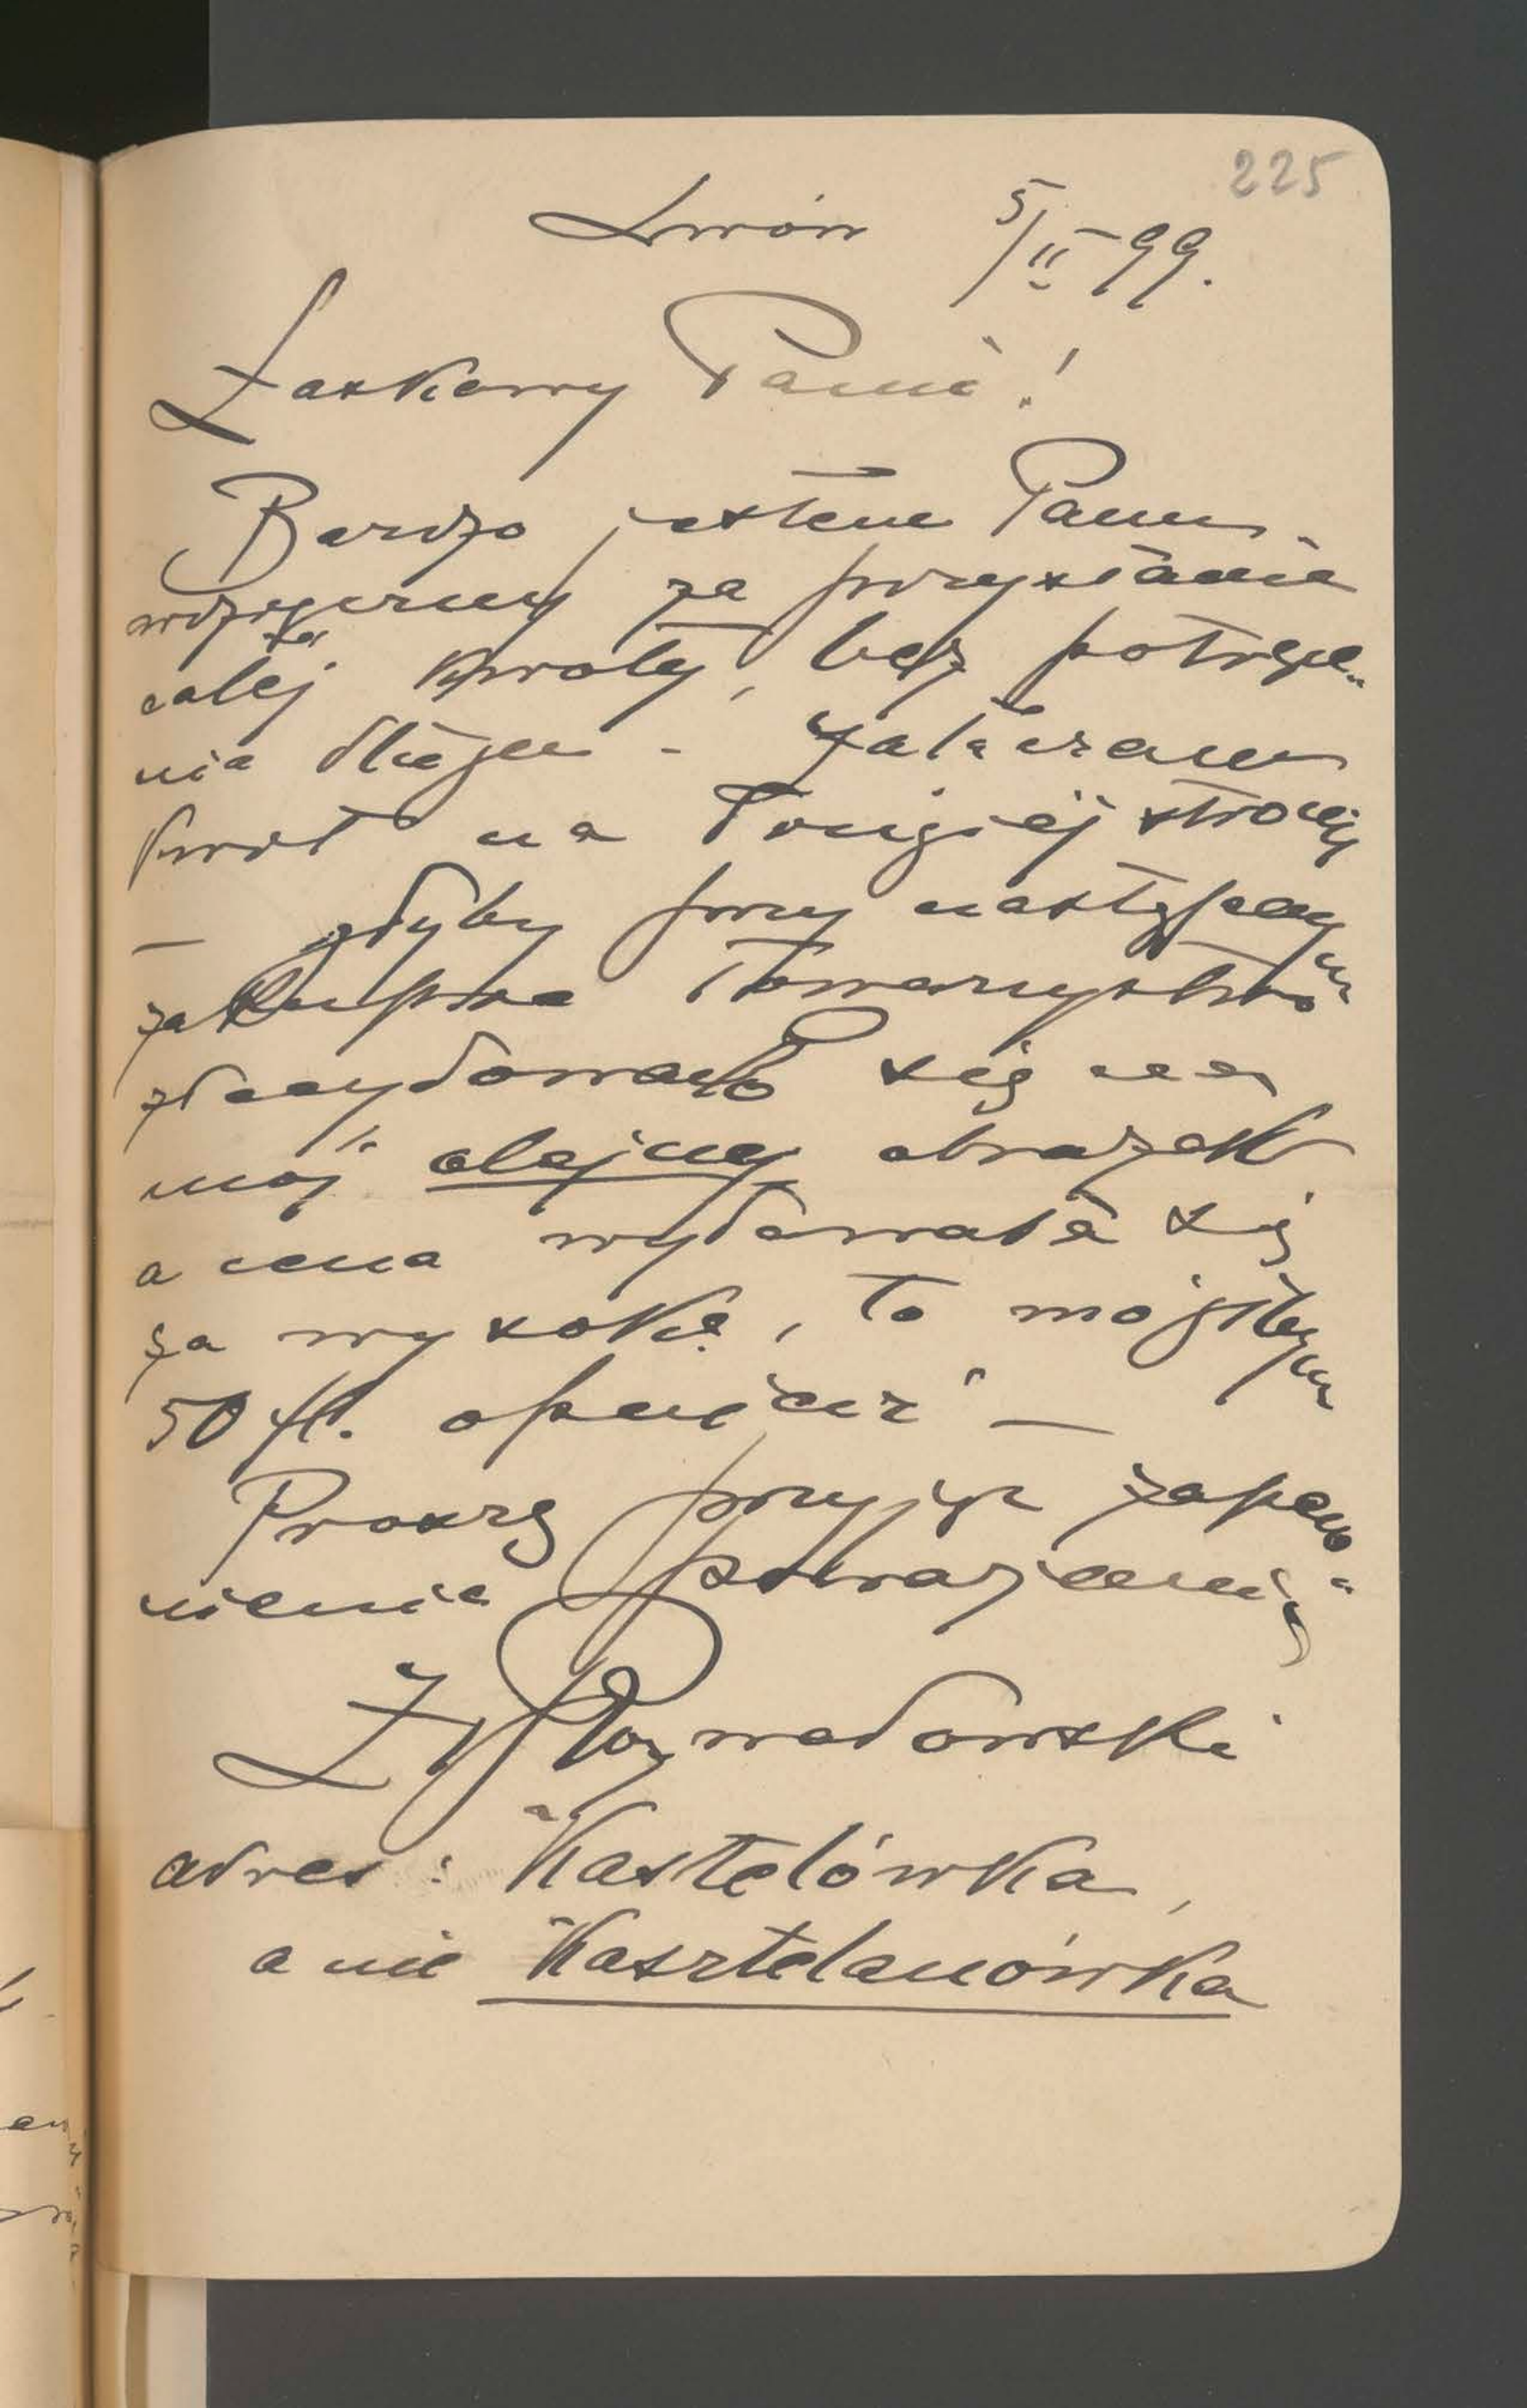 225
Lwów 5/II 99.
Łaskawy Panie!
Bardzo jestem Panu
wdzięczny za przysłanie
całej kwoty, bez potrące„
nia długu - załączam
kwit na drugiej stronie
— gdyby przy następnym
zakupnie Towarzystwo
zdecydowało się na
mój olejny obrazek
a cena wydawała się
za wysoką, to mógłbym
50 fl. opuścić —
Proszę przyjąć zapew„
nienie poważania
Rozwadowski
adres: Kastelówka,
a nie Kasztelanówka